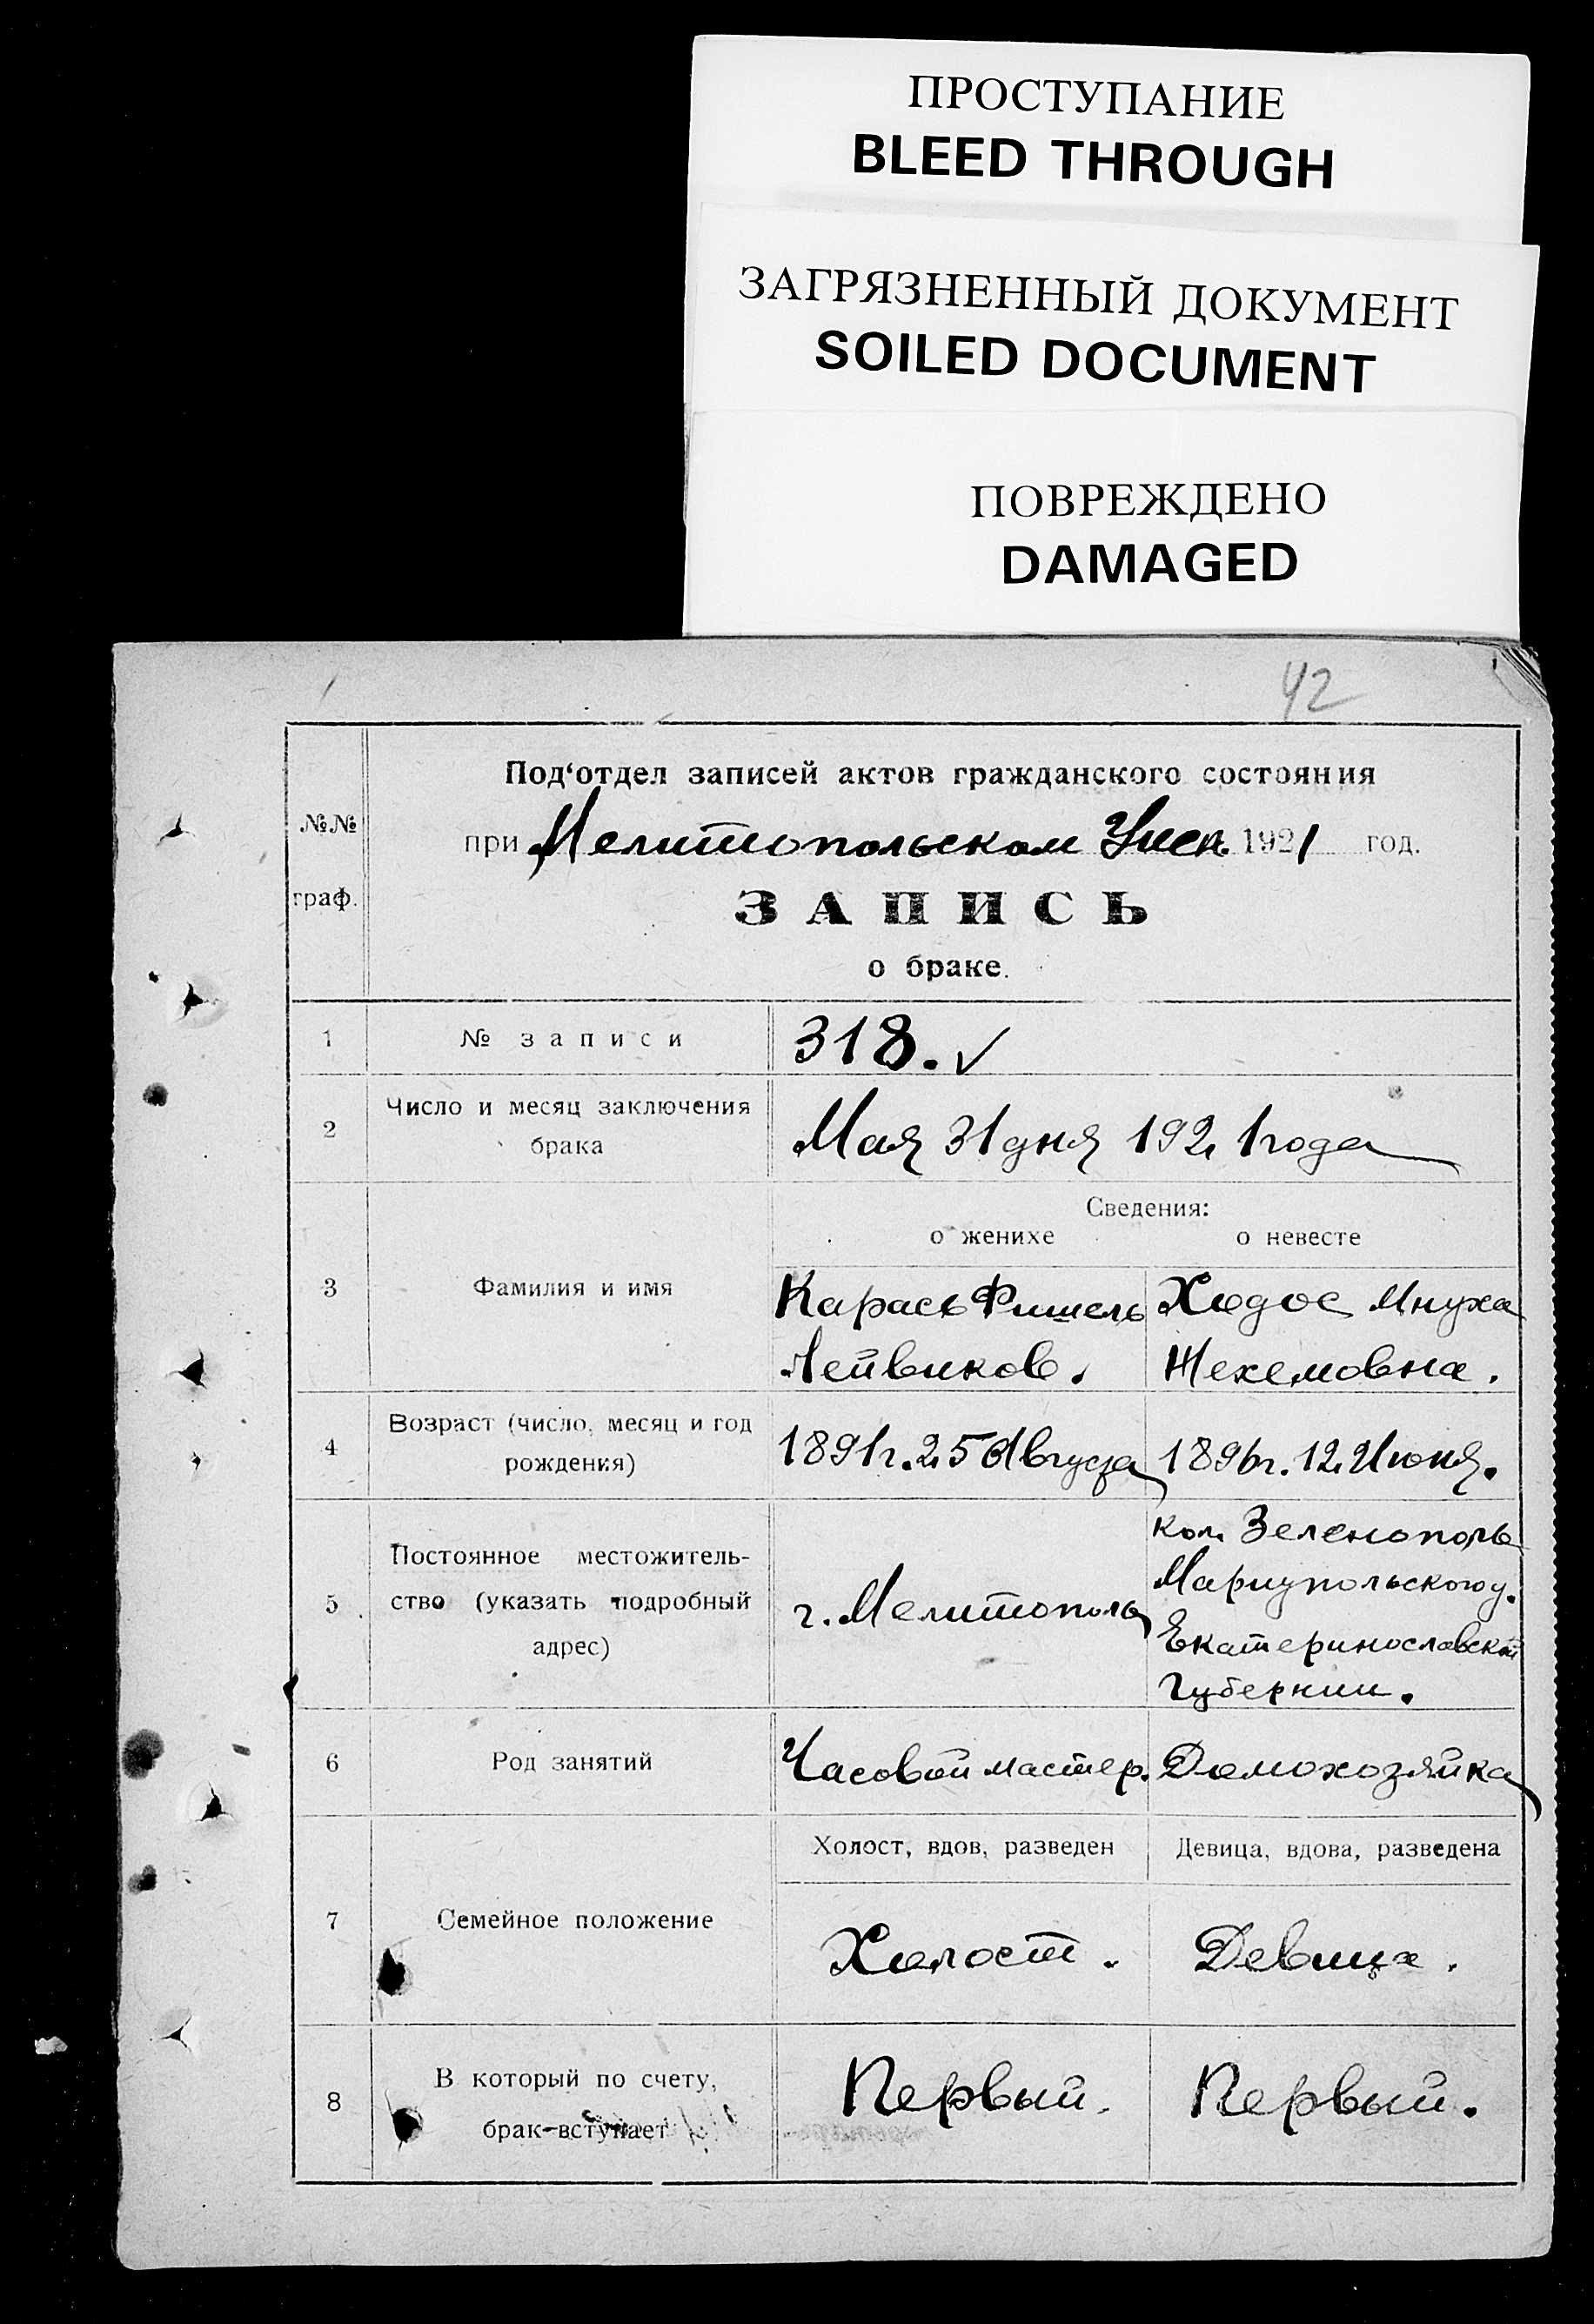 ПРОСТУПАНИЕ
BLEED THROUGH
ЗАГРЯЗНЕННЫЙ ДОКУМЕНТ
SOILED DOCUMENT
ПОВРЕЖДЕНО
DAMAGED
42
№№ граф.
Под‘отдел записей актов гражданского состояния
при Мелитопольском Уисп. 1921 год.
ЗАПИСЬ
о браке.
1 № записи 318.✓
2 Число и месяц заключения
брака
Мая 31 дня 1921 года
Сведения:
о женихе о невесте
3 Фамилия и имя
Карась Фишель Ходос Мнуха
Лейвиков. Жехемовна.
4 Возраст (число, месяц и год
рождения)
1891г. 25 Августа 1896г. 12 Июня.
5 Постоянное местожитель-
ство (указать подробный
адрес)
г. Мелитополь
кол. Зеленополь
Мариупольского у.
Екатеринославской
Губернии.
6 Род занятий Часовой мастер. Домохозяйка
Холост, вдов, разведен Девица, вдова, разведена
7 Семейное положение Холост. Девица.
8 В который по счету,
брак вступает
Первый. Первый.